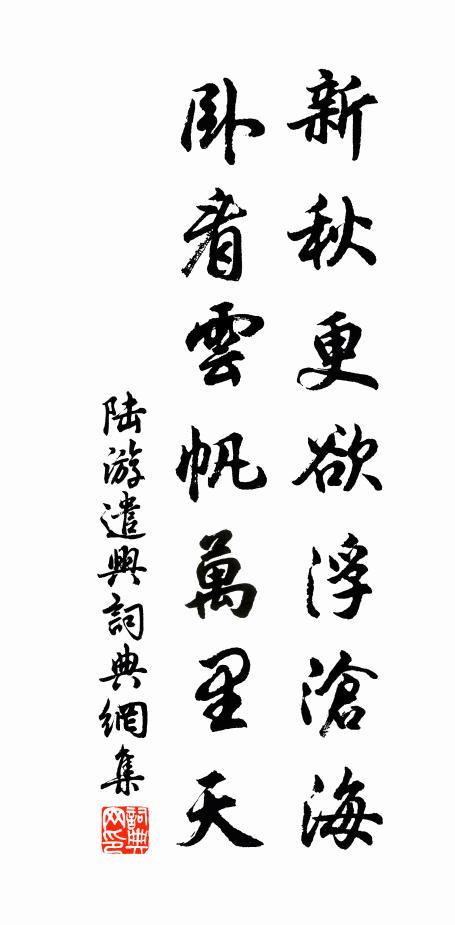 新秋更欲浮滄海
卧看雲帆萬里天
陆游遣興詞典網集
詞典網印